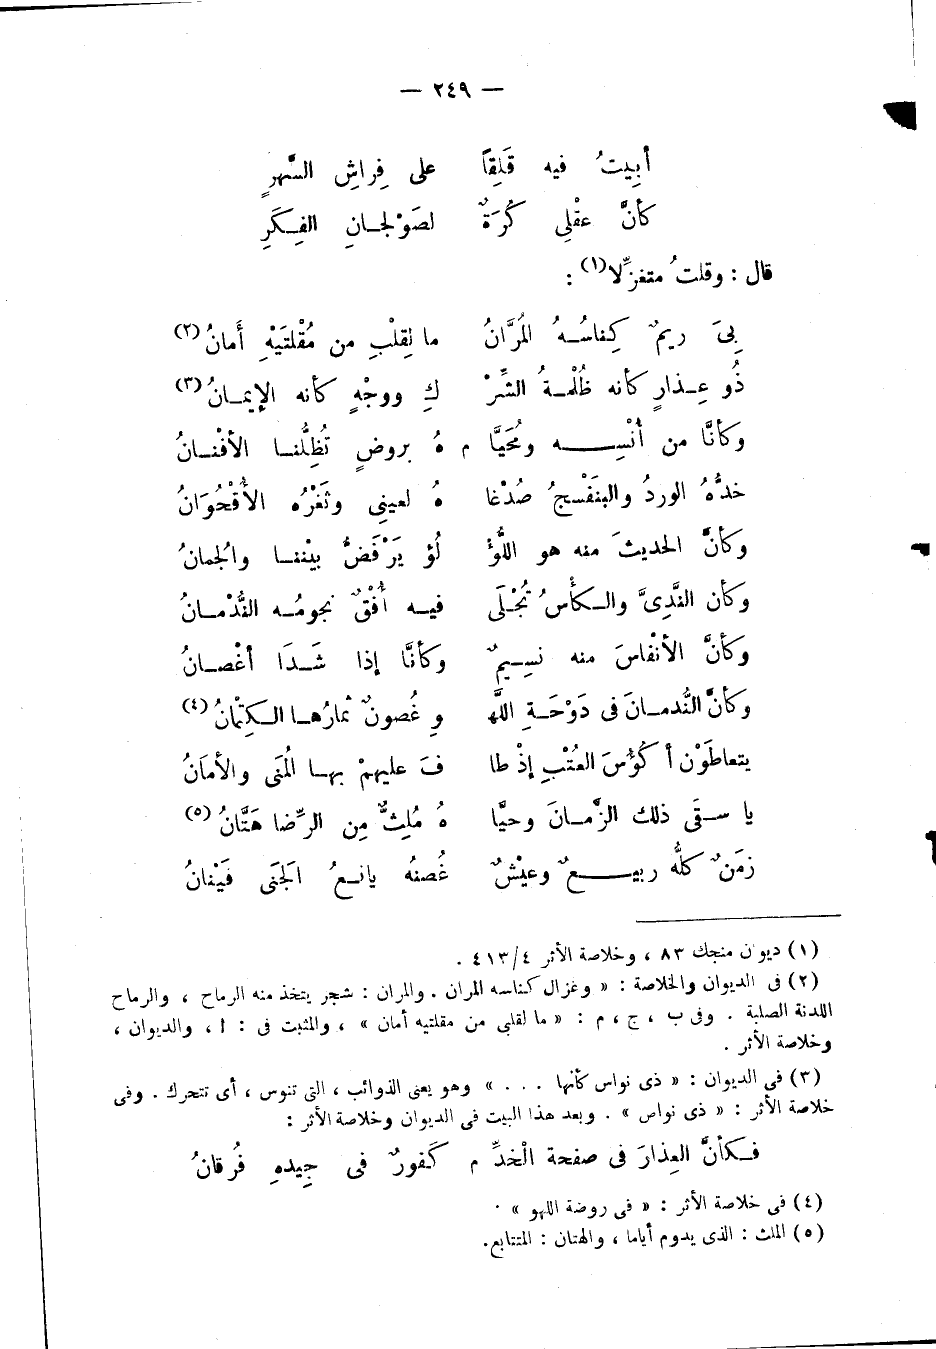 — ٢٤٩ —
أبِيتُ فيه قَلِقًا على فِراشِ السَّهرِ
كأنَّ عقْلِي كُرَةٌ لصَوْلجانِ الفِكَرِ
قال : وقلتُ متغزِّلا(١) :
بِىَ ريمٌ كِناسُهُ المُرَّانُ ما لِقلْبِ من مُقْلتَيْهِ أَمانُ(٢)
ذُو عِذارٍ كأنه ظُلْمةُ الشِّرْ كِ ووجْهٍ كأنه الإيمانُ(٣)
وكأنَّا من أُنْسِه ومُحَيَّا م هُ بروضٍ تُظِلُّنا الأفْنانُ
خدُّهُ الوردُ والبنَفْسجُ صُدْغا هُ لعينِى وثَغْرُه الأُقْحُوَانُ
وكأنَّ الحديثَ منه هو اللُّؤْ لُؤ يَرْفَضُّ بيْننا والجُمانُ
وكأن النَّدِىَّ والكأْسُ تُجْلَى فيه أُفْقٌ نجومُه النُّدْمانُ
وكأنَّ الأنْفاسَ منه نسِيمٌ وكأنَّا إذا شَدَا أغْصانُ
وكأنَّ النُّدمانَ فى دَوْحَةِ اللَّهْ وِ غُصونٌ ثمارُها الكِتْمانُ(٤)
يتعاطَوْن أكؤُسَ العُتْبِ إذْ طا فَ عليهمْ بها المُنَى والأمَانُ
يا سقَى ذلك الزَّمانَ وحيَّا هُ مُلِثٌّ مِن الرِّضا هَتَّانُ(٥)
زمَنٌ كلُّه ربيعٌ وعيْشٌ غُصنُه يانعُ الجَنَى فَيْنانُ
(١) ديوان منجك ٨٣ ، وخلاصة الأثر ٤/٤١٣ .
(٢) فى الديوان والخلاصة : « وغزال كناسه المران . والمران : شجر يتخذ منه الرماح ، والرماح
اللدنة الصلبة . وفى ب ، ج ، م : « ما لقلبى من مقلتيه أمان » ، والمثبت فى : ا ، والديوان ،
وخلاصة الأثر .
(٣) فى الديوان : « ذى نواس كأنها . . . » وهو يعنى الذوائب ، التى تنوس ، أى تتحرك . وفى
خلاصة الأثر : « ذى نواص » . وبعد هذا البيت فى الديوان وخلاصة الأثر :
فكأنَّ العِذارَ فى صفحة الْخدِّ م كَفورٌ فى جِيدهِ فُرقانُ
(٤) فى خلاصة الأثر : « فى روضة اللهو » .
(٥) الملث : الذى يدوم أياما ، والهتان : المتتابع.